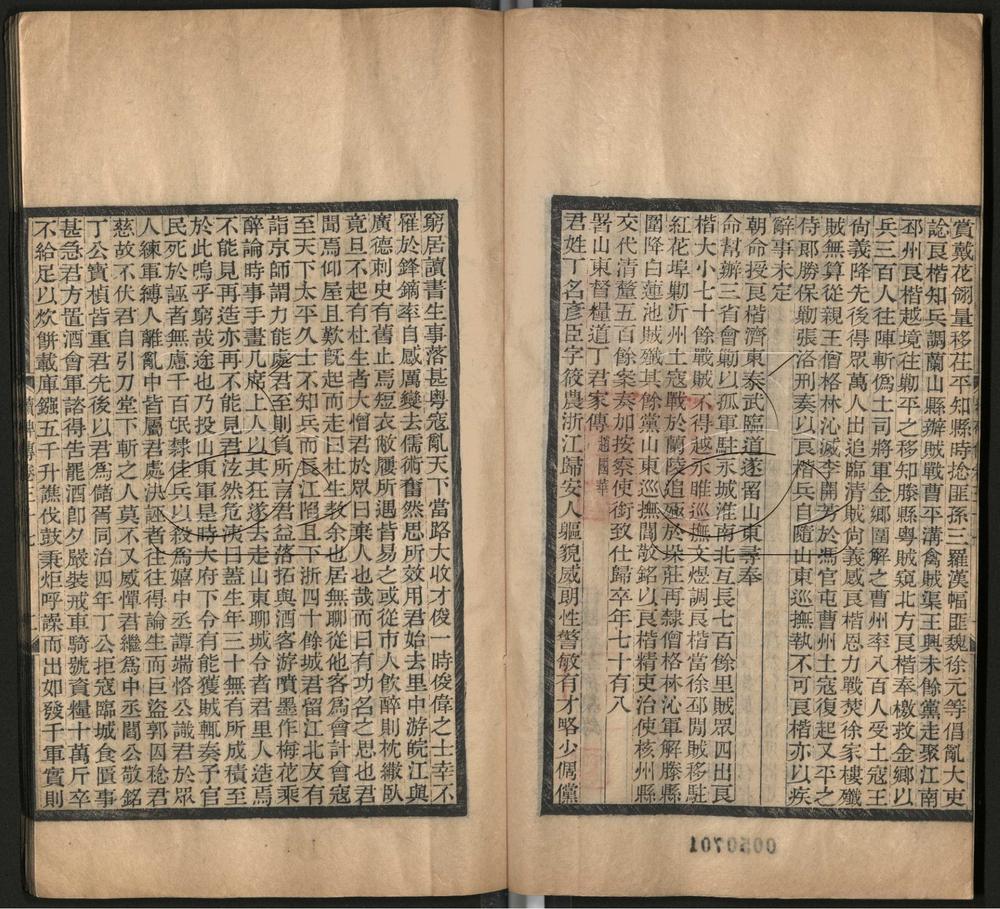 賞戴花翎量移茌平知縣時捻匪孫三羅漢幅匪魏徐元等倡亂大吏
諗良楷知兵調蘭山縣辦賊戰曹平溝禽賊渠王興未餘黨走聚江南
邳州良楷越境往勦平之移知滕縣粵賊窺北方良楷奉檄救金鄉以
兵三百人往陣斬僞土司將軍金鄉圍解之曹州率八百人受土寇王
尙義降先後得眾萬人出追臨清賊尙義感良楷恩力戰焚徐家樓殲
賊無算從親王僧格林沁滅李開芳於馮官屯曹州土寇復起又平之
侍郎勝保勦張洛刑奏以良楷兵自隨山東巡撫執不可良楷亦以疾
辭事未定
朝命授良楷濟東泰武臨道遂留山東尋奉
命幫辦三省會勦以孤軍駐永城淮南北互長七百餘里賊眾四出良
楷大小七十餘戰賊不得越永睢巡撫文煜調良楷當徐邳閒賊移駐
紅花埠勦沂州土寇戰於蘭陵追殛於垛莊再隸僧格林沁軍解滕縣
圍降白蓮池賊殲其餘黨山東巡撫閻敬銘以良楷精吏治使核州縣
交代清釐五百餘案奏加按察使銜致仕歸卒年七十有八
署山東督糧道丁君家傳 趙國華
君姓丁名彥臣字筱農浙江歸安人軀貌威明性警敏有才略少倜儻
窮居讀書生事落甚粵寇亂天下當路大收才俊一時俊偉之士幸不
罹於鋒鏑率自感厲變去儒術奮然思所效用君始去里中游皖江與
廣德刺史有舊止焉短衣敝屨所遇皆易之或從市人飲醉則枕繖臥
竟旦不起有杜生者大憎君於眾曰棄人也哉而曰有功名之思也君
聞焉仰屋且歎旣起而走曰杜生教余也居無聊從他客爲會計會寇
至天下太平久士不知兵而長江陷且下浙四十餘城君留江北友有
詣京師謂力能處君至則負所言君益落拓與酒客游噴墨作梅花乘
醉論時事手畫几席上人以其狂遂去走山東聊城令者君里人造焉
不能見再造亦再不能見君泫然危洟曰蓋生年三十無有所成積至
於此嗚乎窮哉途也乃投山東軍是時大府下令有能獲賊輒奏予官
民死於誣者無慮千百氓隸徒兵以殺爲嬉中丞譚端恪公識君於眾
人練軍縛人離亂中皆屬君處決誣者往往得論生而巨盜郭囚稔君
慈故不伏君自引刀堂下斬之人莫不又感憚君繼爲中丞閻公敬銘
丁公寶楨皆重君先後以君爲儲胥同治四年丁公拒寇臨城食匱事
甚急君方置酒會軍諮得告罷酒卽夕嚴裝戒車騎號資糧十萬斤卒
不給足以炊餅載庫鏹五千升譙伐鼓秉炬呼譟而出如發千軍實則
續碑傳卷三十七
0050701